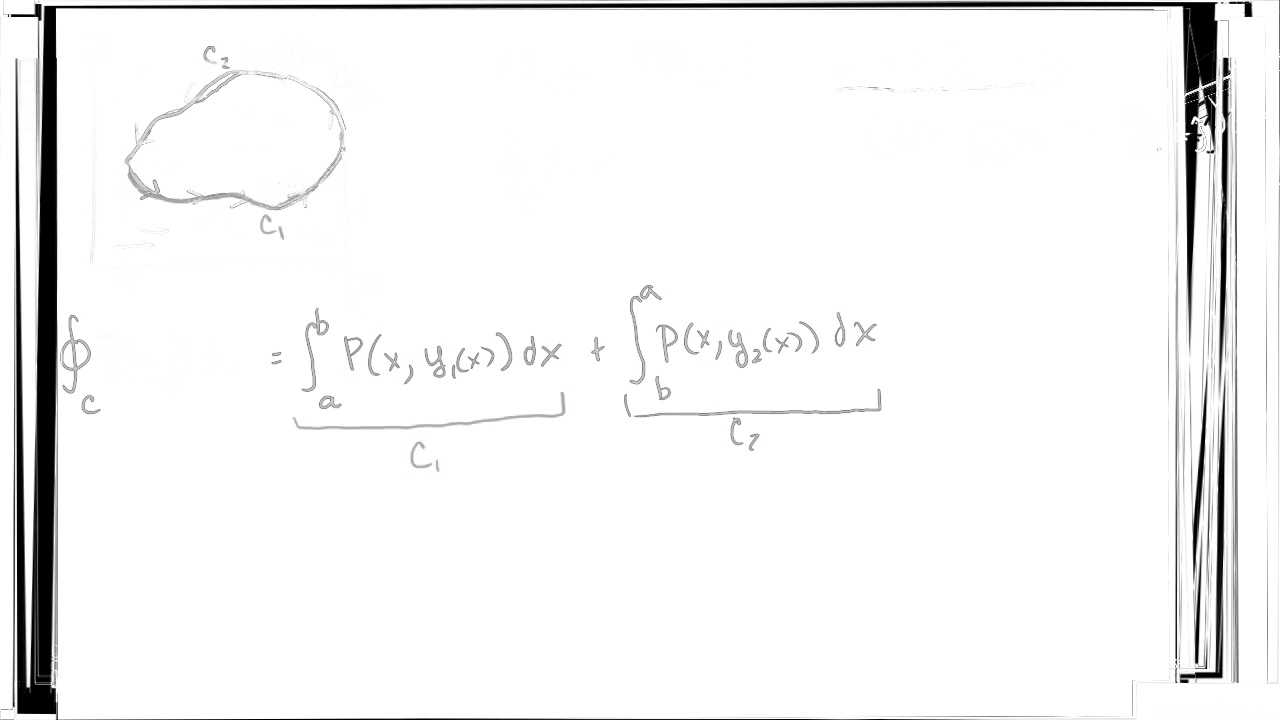 C₂
C₁
∮_C = ∫_a^b P(x, y₁(x)) dx + ∫_b^a P(x, y₂(x)) dx
C₁ C₂